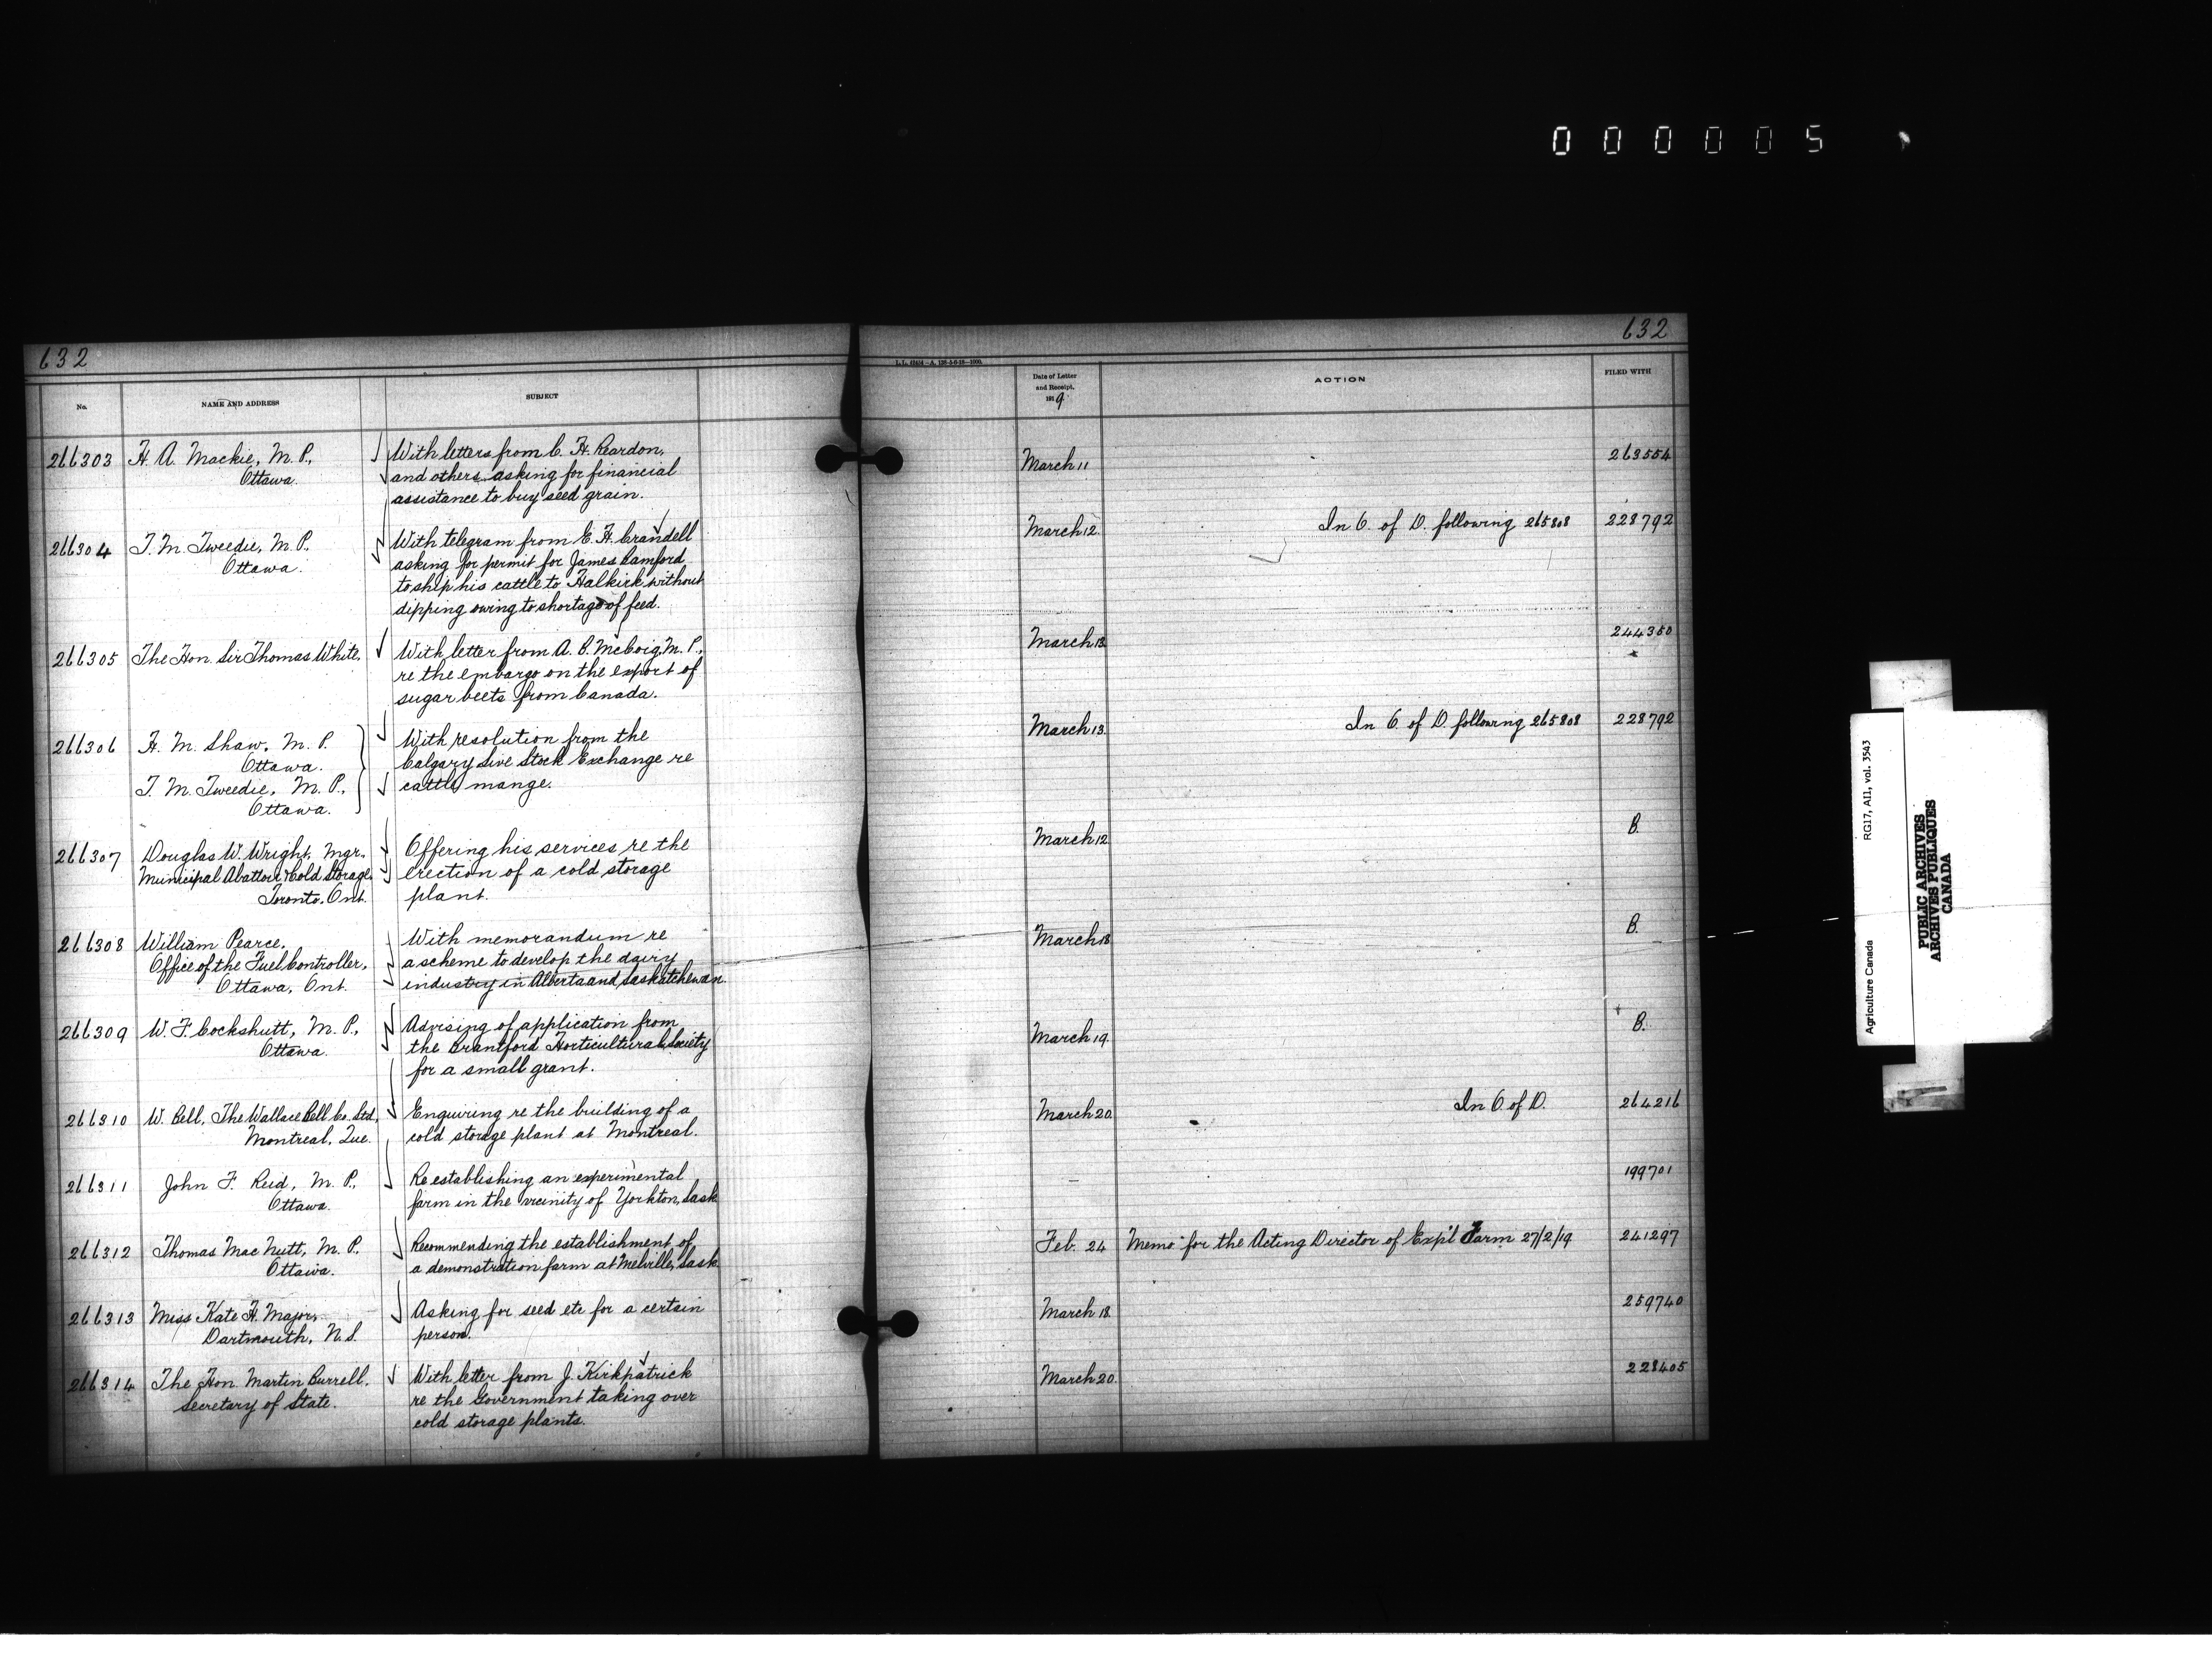 000005
632
632
L.L. 42414—A. 126-5-6-18—1000.
No.
NAME AND ADDRESS
SUBJECT
Date of Letter
and Receipt,
1919
ACTION
FILED WITH
266303
H. A. Mackie, M. P.,
Ottawa.
With letters from C. H. Reardon,
and others asking for financial
assistance to buy seed grain.
March 11
263554
266304
T. M. Tweedie, M. P.
Ottawa.
With telegram from E. H. Crandell
asking for permit for James Bamford
to ship his cattle to Halkirk without
dipping owing to shortage of feed.
March 12.
In C. of D. following 265808
228792
266305
The Hon. Sir Thomas White.
With letter from A. B. McCoig, M. P.,
re the embargo on the export of
sugar beets from Canada.
March 13.
244350
266306
H. M. Shaw, M. P.
Ottawa.
T. M. Tweedie, M. P.,
Ottawa.
With resolution from the
Calgary Live Stock Exchange re
cattle mange.
March 13.
In C of D. following 265808
228792
266307
Douglas W. Wright, Mgr.
Municipal Abattoir & Cold Storage,
Toronto, Ont.
Offering his services re the
erection of a cold storage
plant.
March 12
B.
266308
William Pearce,
Office of the Fuel Controller,
Ottawa, Ont.
With memorandum re
a scheme to develop the dairy
industry in Alberta and Saskatchewan.
March 18
B.
266309
W. F. Cockshutt, M. P.,
Ottawa.
Advising of application from
the Brantford Horticultural Society
for a small grant.
March 19.
B.
266310
W. Bell, The Wallace Bell Co. Ltd.,
Montreal, Que.
Enquiring re the building of a
cold storage plant at Montreal.
March 20.
In C of D.
264216
266311
John F. Reid, M. P.,
Ottawa.
Re establishing an experimental
farm in the vicinity of Yorkton, Sask
199701
266312
Thomas MacNutt, M. P.
Ottawa.
Recommending the establishment of
a demonstration farm at Melville, Sask.
Feb. 24
Memo for the Acting Director of Exp'l Farm 27/2/19
241297
266313
Miss Kate H. Major,
Dartmouth, N. S.
Asking for seed etc for a certain
person.
March 18.
259740
266314
The Hon. Martin Burrell,
Secretary of State.
With letter from J. Kirkpatrick
re the Government taking over
cold storage plants.
March 20.
228405
Agriculture Canada RG17, AI1, vol. 3543
PUBLIC ARCHIVES
ARCHIVES PUBLIQUES
CANADA